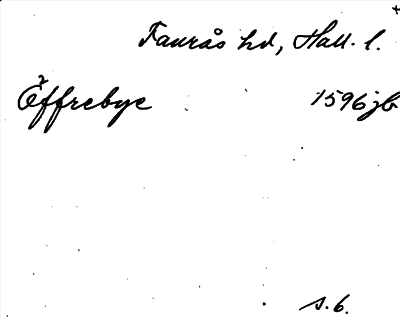 Faurås hd, Hall. l.
Öffrebye 1596 jb
s. 6.